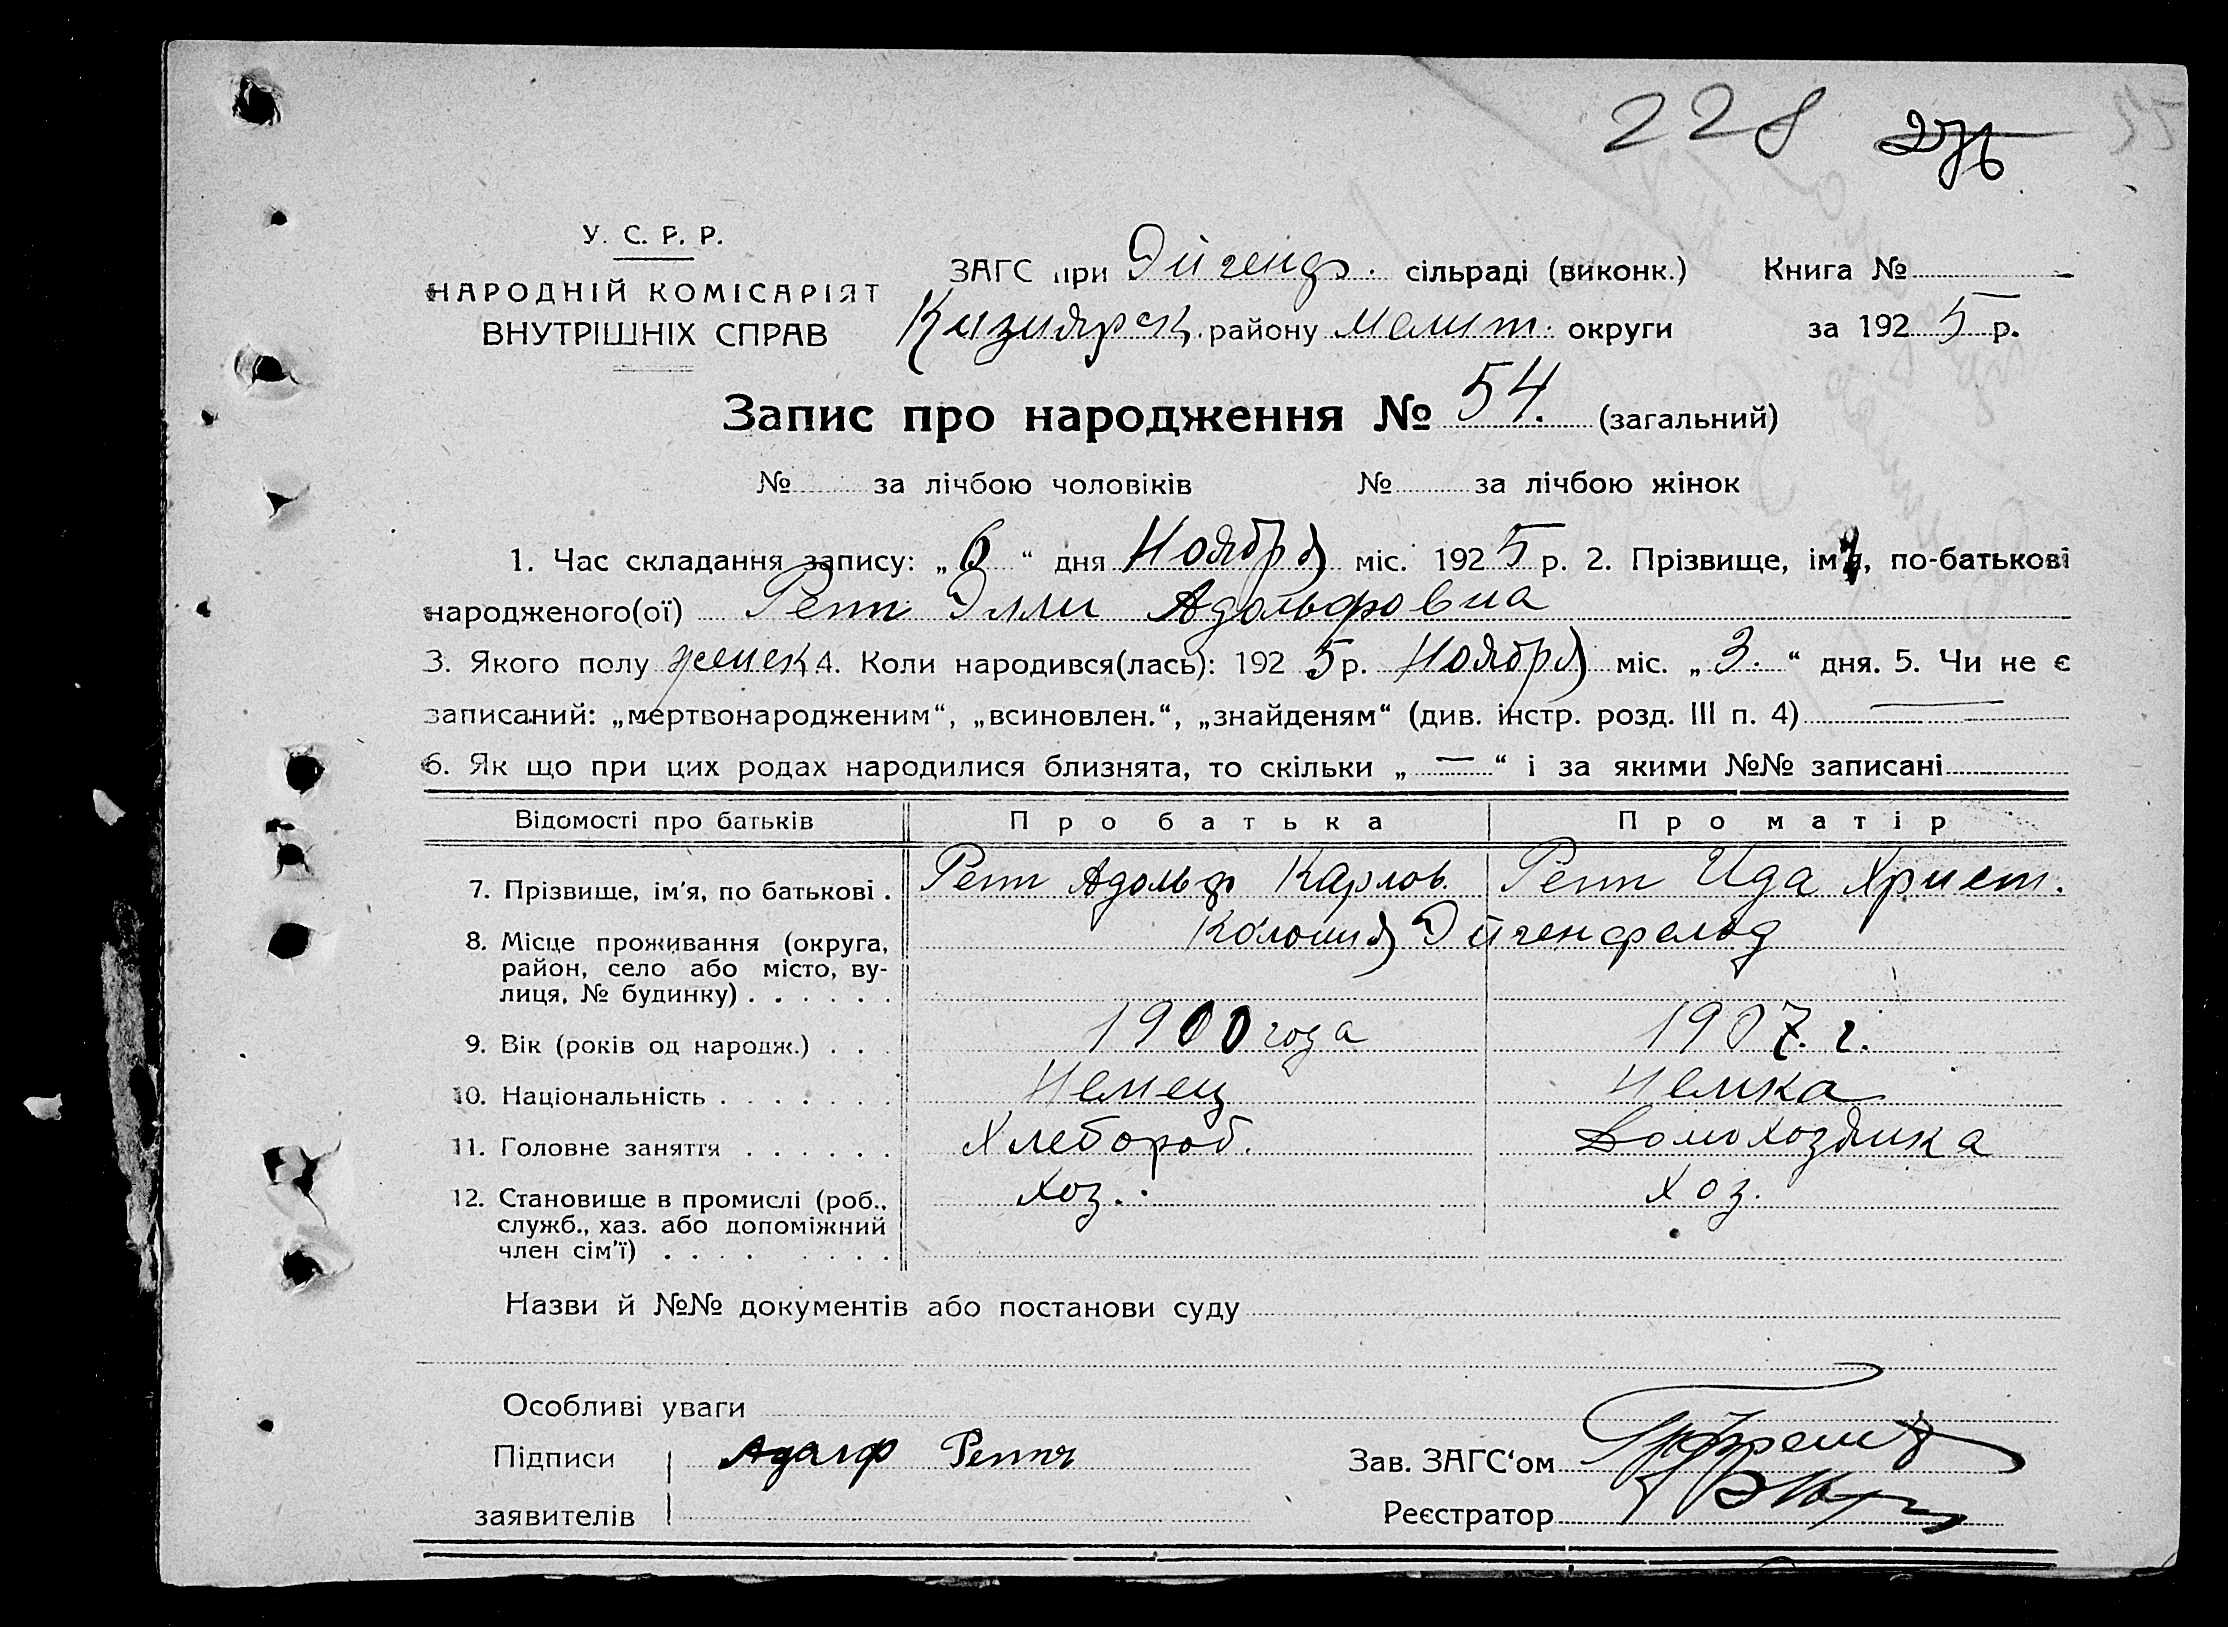 228 276
У. С. Р. Р.
НАРОДНІЙ КОМІСАРІЯТ
ВНУТРІШНІХ СПРАВ
ЗАГС при Эйгенф. сільраді (виконк.) Книга №
Кизиярск. району Мелит. округи за 1925 р.
Запис про народження № 54. (загальний)
№ за лічбою чоловіків № за лічбою жінок
1. Час складання запису: „6“ дня Ноября міс. 1925 р. 2. Прізвище, ім'я, по-батькові
народженого(ої) Репп Элли Адольфовна
3. Якого полу женск. 4. Коли народився(лась): 1925 р. Ноября міс. „3.“ дня. 5. Чи не є
записаний: „мертвонародженим“, „всиновлен.“, „знайденям“ (див. інстр. розд. III п. 4) —
6. Як що при цих родах народилися близнята, то скільки „—“ і за якими №№ записані
Відомості про батьків Про батька Про матір
7. Прізвище, ім'я, по батькові . Репп Адольф Карлов. Репп Ида Христ.
8. Місце проживання (округа, Колония Эйгенфельд
район, село або місто, ву-
лиця, № будинку) . . . . . .
9. Вік (років од народж.) . . . 1900 года 1907. г.
10. Національність . . . . . . . Немец Немка
11. Головне заняття . . . . . . Хлебороб. Домохозяика
12. Становище в промислі (роб., Хоз. Хоз.
служб., хаз. або допоміжний
член сім'ї) . . . . . . . .
Назви й №№ документів або постанови суду
Особливі уваги
Підписи Адалф Репп Зав. ЗАГС'ом
заявителів Реєстратор